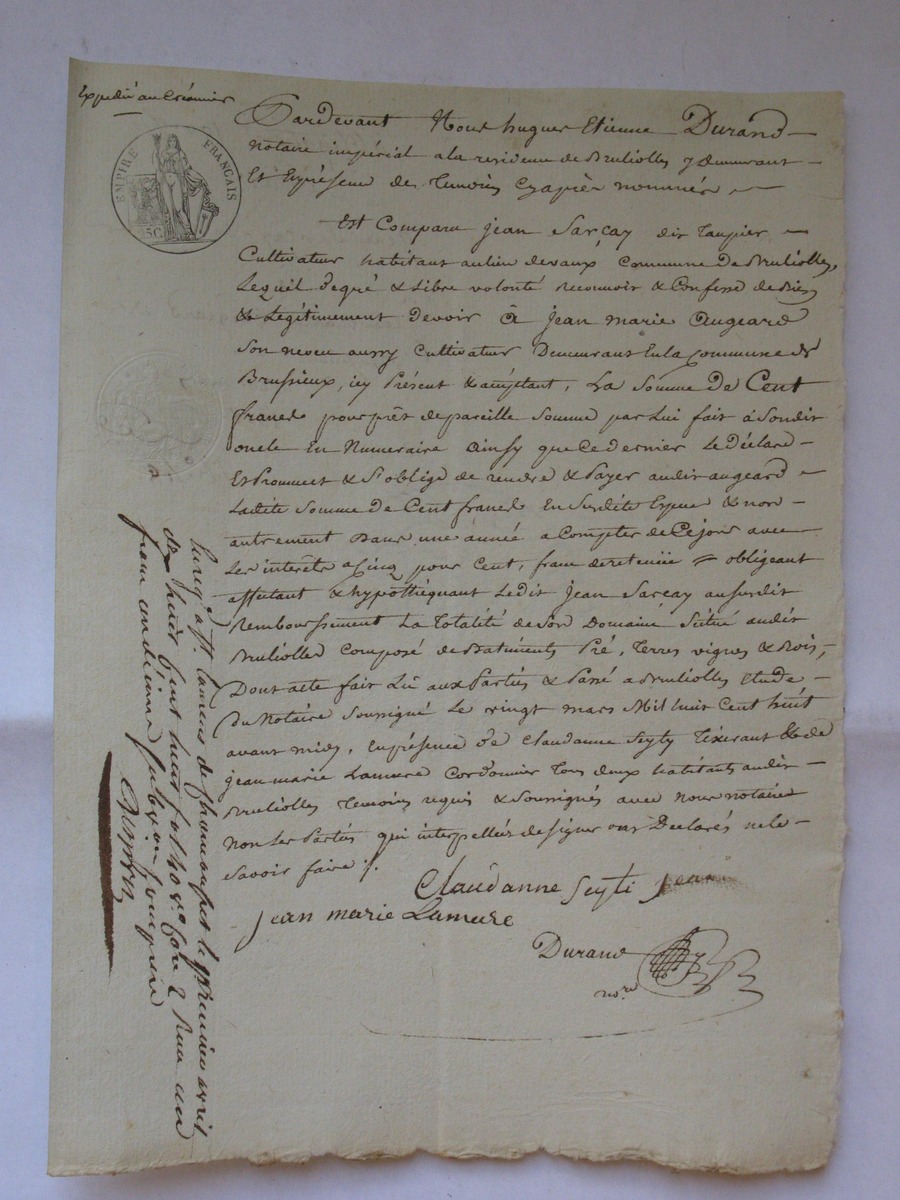 Expedié au Créancier
EMPIRE FRANÇAIS
25C
Pardevant Nous hugues Etienne Durand
notaire impérial a la residence de Brulliolles y Demeurant
Et Enprésence des Temoins Cyaprès nommés
Est Comparu jean Sarcay dit Taupier
Cultivateur habitant aulieu devaux Commune de Brulliolles,
Lequel degré & Libre volonté reconnoit & Confesse de Bien
& Legitimement Devoir à jean marie augeard
Son neveu aussy Cultivateur Demeurant Enla Commune de
Brussieux, icy Présent & acceptant, La Somme De Cent
francs pour prêt de pareille Somme par Lui fait á Sondit
oncle En Numeraire ainsy que Ce dernier Le Déclare
Et Prommet & S'oblige de rendre & Payer audit augeard
Ladite Somme De Cent francs en Susdite Espece & non
autrement Dans une année a Compter de Ce jour avec
Les interêts a Cinq pour Cent, franc de retenüe = obligeant
affectant & hypothéquant Ledit jean Sarcay au Susdit
Remboursement La Totalité de Son Domaine Situé audit
Brulliolles Composé de Batiments Pré, Terres vignes & Bois,
Dont acte fait Lû aux Parties & Passé a Brulliolles Etude
du Notaire Soussigné Le vingt mars Mil huit Cent huit
avant midy, En présence de Claudanne Seyty Tixerant & de
jean marie Lamure Cordonnier Tous deux habitants audit
Brulliolles Temoins requis & Soussignés avec Nous notaire
Non Les Parties qui interpellées de signer ont Déclarés ne le
Savoir faire /.
Claudanne Seyti jean
jean marie Lamure
Durand
no.re
Enreg.é a St. Laurent de Chamousset le premier avril
dix huit Cent huit fol. 110 v.o Cases 2 Reçu un
franc un dixieme